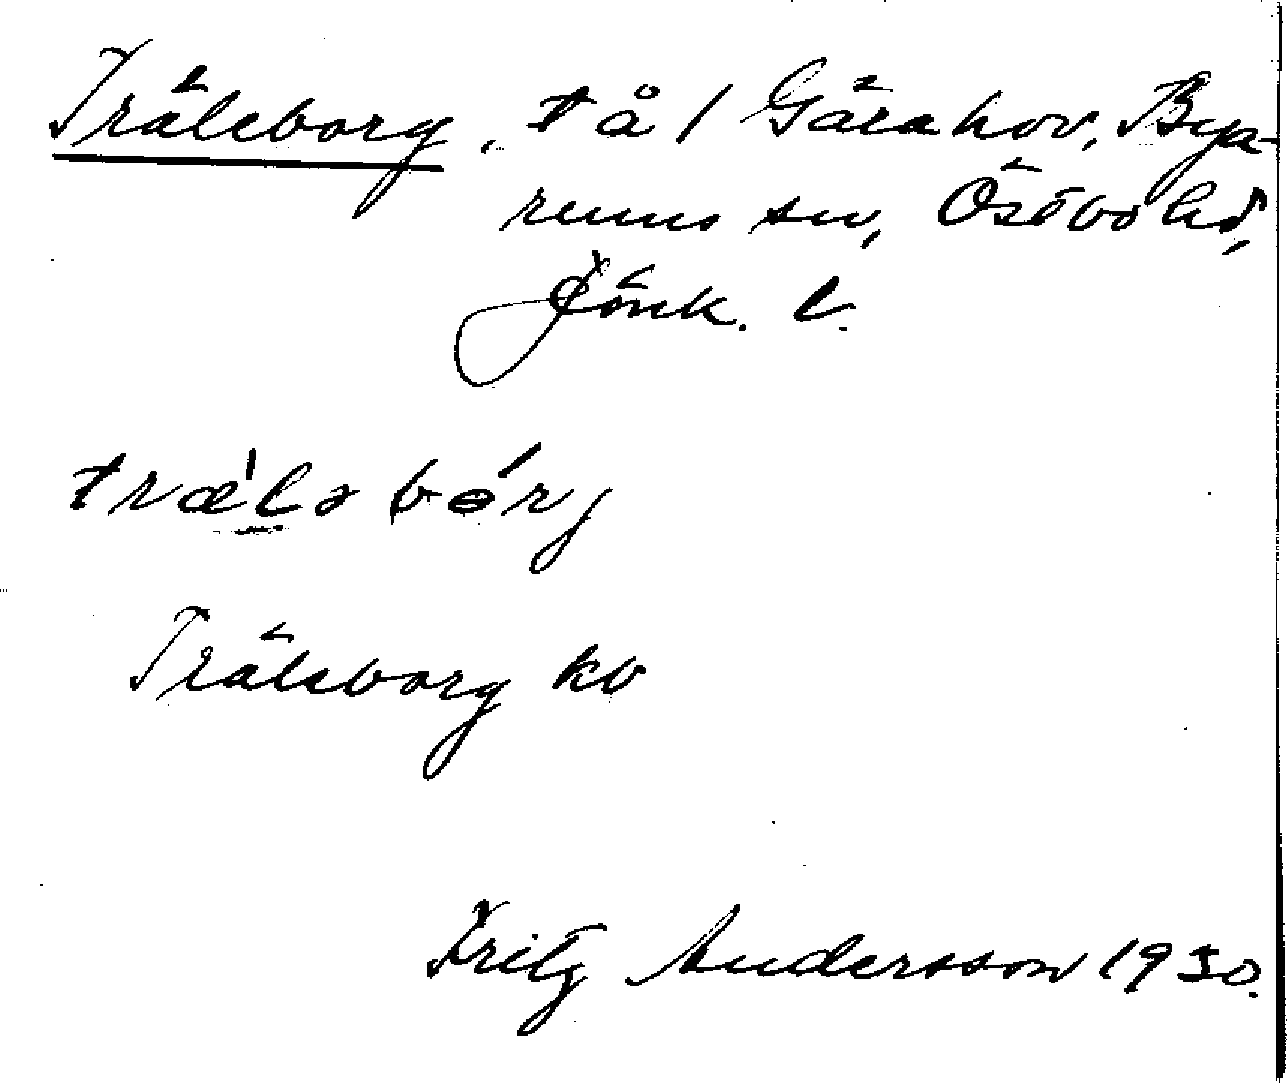 Träleborg, t å 1 Gärahov, Bya-
rums sn, Östbo hd,
Jönk. l.
træ̀ləbórj
Träleborg kb
Fritz Andersson 1930.